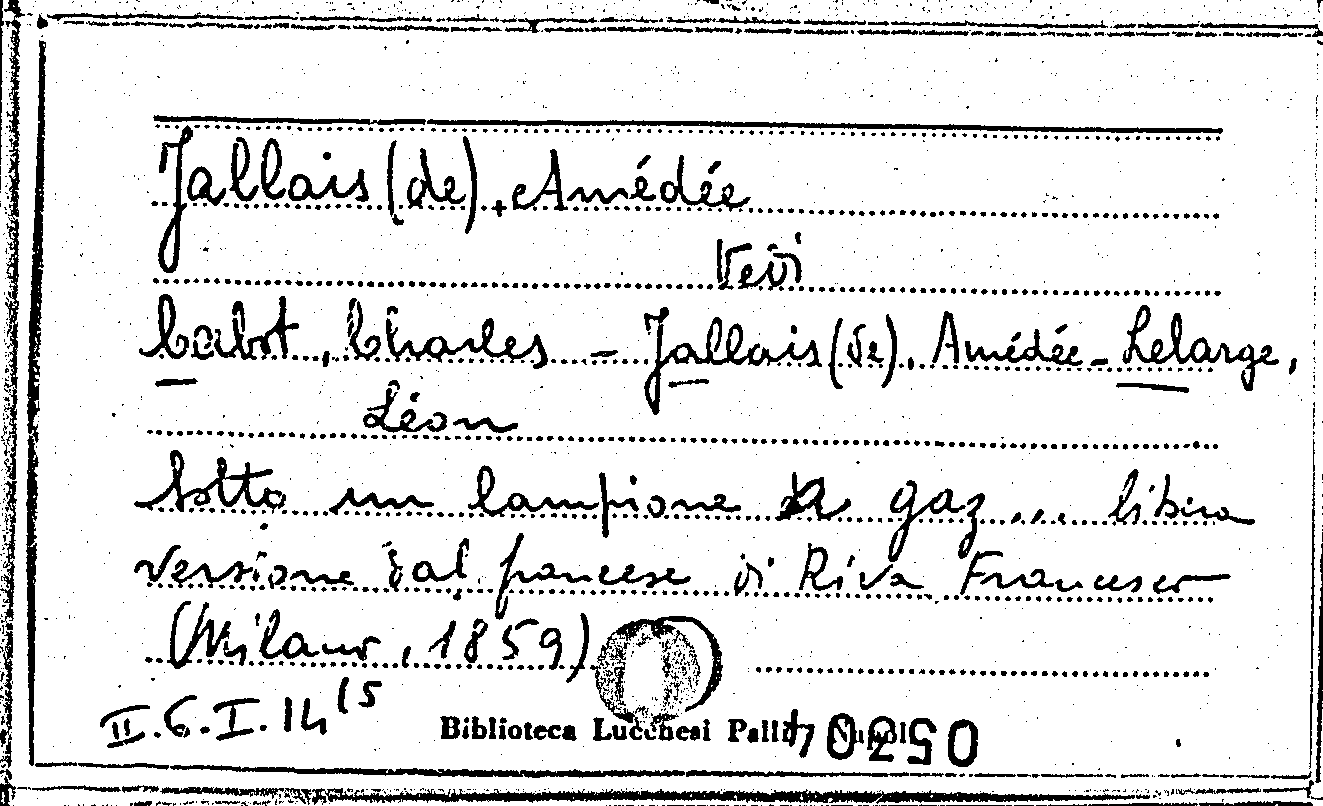 Jallais (de), Amédée
Vedi
Cabot, Charles - Jallais (de), Amédée - Lelarge,
Léon
Sotto un lampione a gaz ... libera
versione dal francese di Riva Francesco
(Milano, 1859)
II.6.I.14 (5
Biblioteca Lucchesi Palli